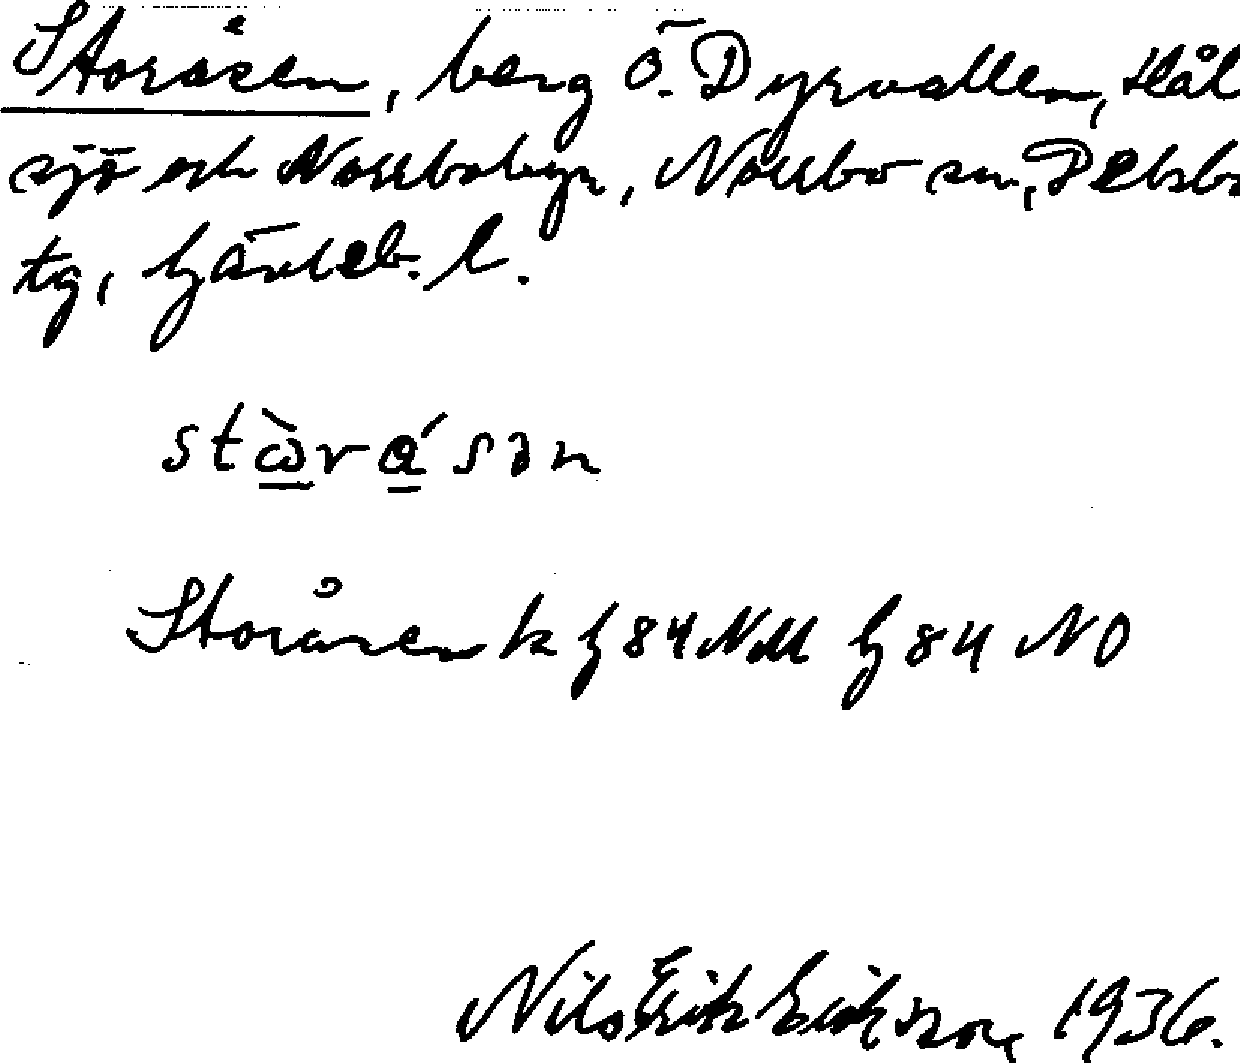 Storåsen, berg Ö. Dyrvallen, Hål
sjö och Norrbobyn, Norrbo sn, Delsbo
tg, Gävleb. l.
stὼrάsən
Storåsen k g 84 NM g 84 NO
Nils Erik Eriksson, 1936.